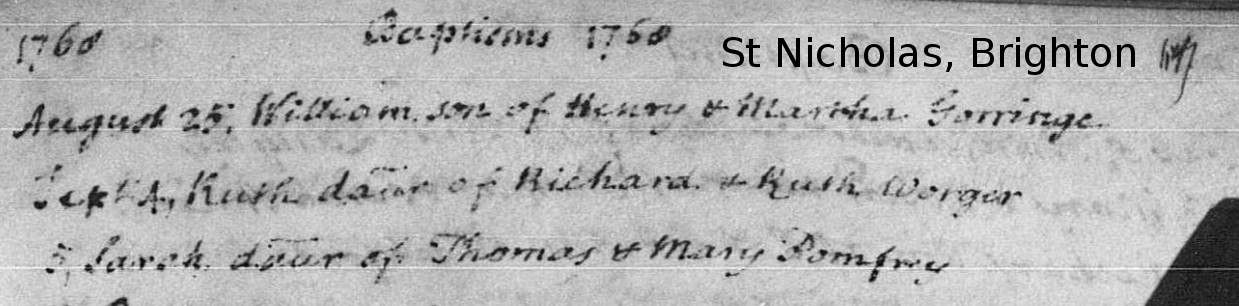 1768 Baptisms 1768
St Nicholas, Brighton
August 25, William son of Henry & Martha Gorringe
Sept 4, Ruth daur of Richard & Ruth Worger
5, Sarah daur of Thomas & Mary Pomfrey